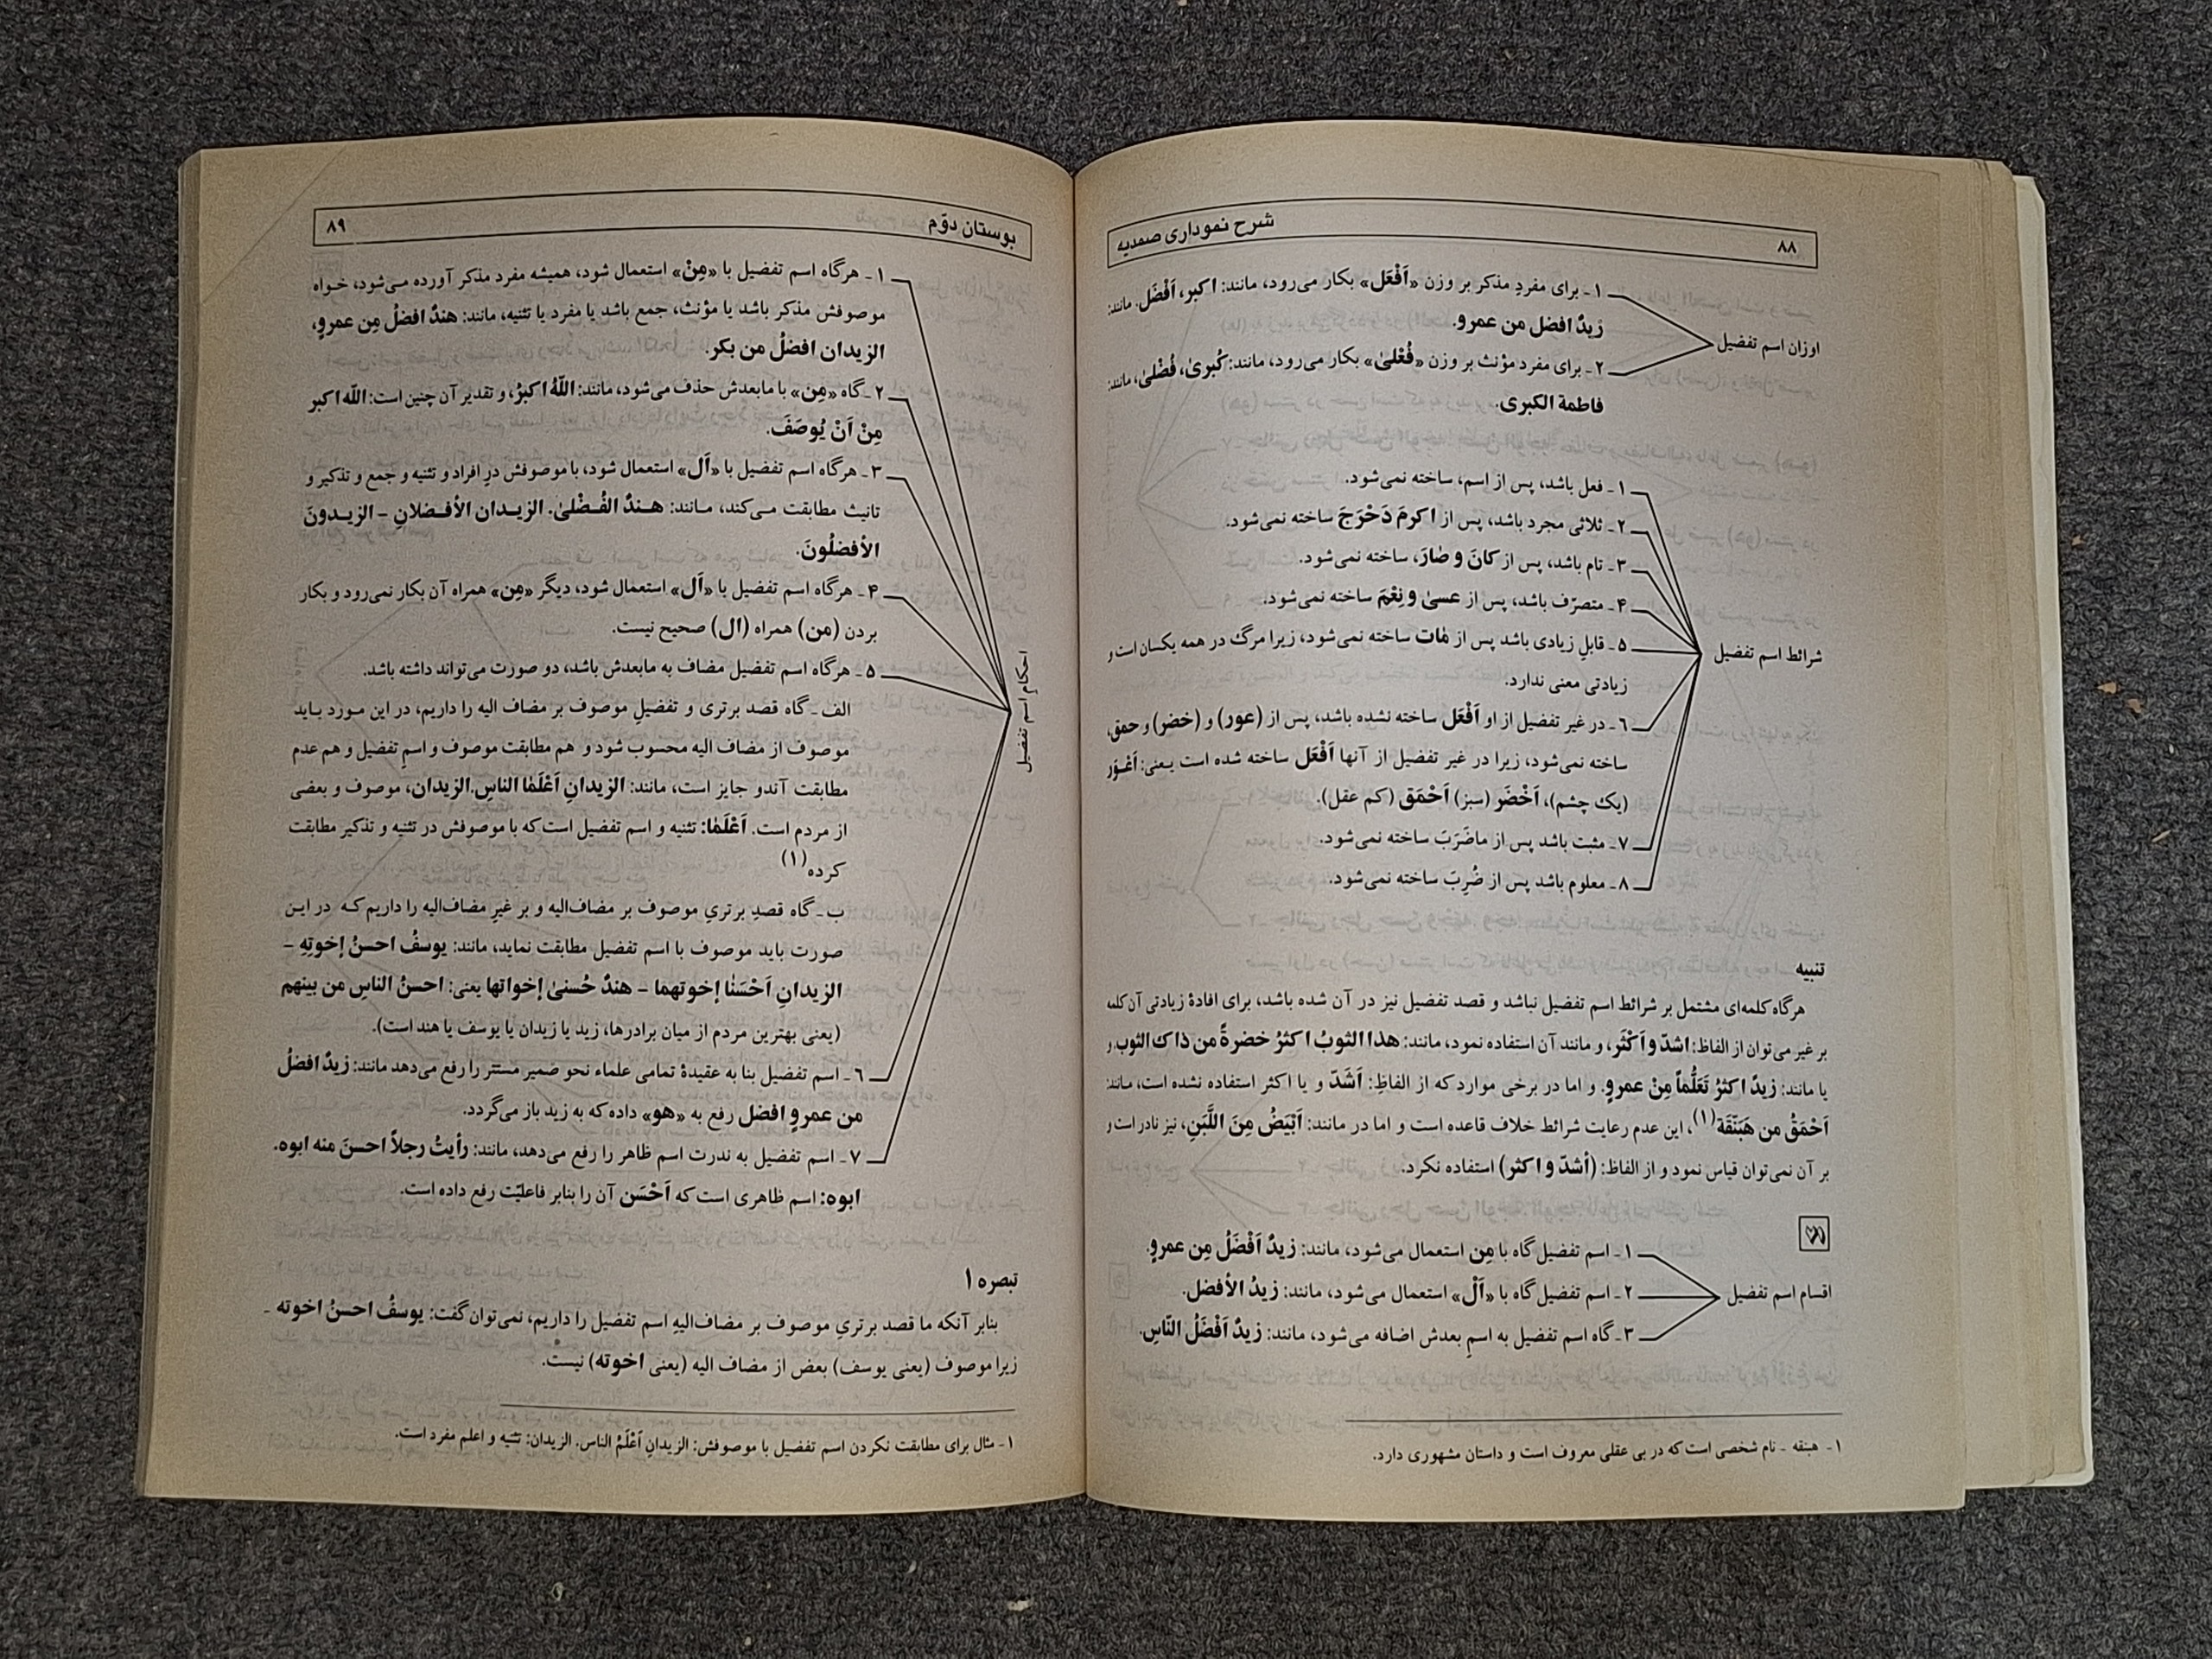 ۸۸
شرح نموداری صمدیه
اوزان اسم تفضیل
۱ـ برای مفردِ مذکر بر وزن «اَفْعَل» بکار می‌رود، مانند: اکبر، اَفْضَل. مانند:
زَیدٌ افضل من عمرو.
۲ـ برای مفرد مؤنث بر وزن «فُعْلیٰ» بکار می‌رود، مانند: کُبریٰ، فُضْلیٰ، مانند:
فاطمة الکبری.
شرائط اسم تفضیل
۱ـ فعل باشد، پس از اسم، ساخته نمی‌شود.
۲ـ ثلاثی مجرد باشد، پس از اکرمَ دَحْرَجَ ساخته نمی‌شود.
۳ـ تام باشد، پس از کانَ و صٰارَ، ساخته نمی‌شود.
۴ـ متصرّف باشد، پس از عسیٰ و نِعْمَ ساخته نمی‌شود.
۵ـ قابلِ زیادی باشد پس از مٰات ساخته نمی‌شود، زیرا مرگ در همه یکسان است و
زیادتی معنی ندارد.
٦ـ در غیر تفضیل از او اَفْعَل ساخته نشده باشد، پس از (عور) و (خضر) و حمق،
ساخته نمی‌شود، زیرا در غیر تفضیل از آنها اَفْعَل ساخته شده است یـعنی: اَعْـوَر
(یک چشم)، اَخْضَر (سبز) اَحْمَق (کم عقل).
۷ـ مثبت باشد پس از ماضَرَبَ ساخته نمی‌شود.
۸ـ معلوم باشد پس از ضُرِبَ ساخته نمی‌شود.
تنبیه
هرگاه کلمه‌ای مشتمل بر شرائط اسم تفضیل نباشد و قصد تفضیل نیز در آن شده باشد، برای افادهٔ زیادتی آن کلمه
بر غیر می‌توان از الفاظ: اشدّ و اَکْثَر، و مانند آن استفاده نمود، مانند: هذا الثوبُ اکثرُ خضرةً من ذاک الثوب و
یا مانند: زیدٌ اکثرُ تَعَلُّماً مِنْ عمروٍ. و اما در برخی موارد که از الفاظِ: اَشَدّ و یا اکثر استفاده نشده است، مـانند:
اَحْمَقُ من هَبَنَّقَة(۱)، این عدم رعایت شرائط خلاف قاعده است و اما در مانند: اَبْیَضُ مِنَ اللَّبَنِ، نیز نادر است و
بر آن نمی‌توان قیاس نمود و از الفاظ: (أشدّ و اکثر) استفاده نکرد.
اقسام اسم تفضیل
۱ـ اسم تفضیل گاه با مِن استعمال می‌شود، مانند: زیدٌ اَفْضَلُ مِن عمروٍ.
۲ـ اسم تفضیل گاه با «اَلْ» استعمال می‌شود، مانند: زیدُ الأفضل.
۳ـ گاه اسم تفضیل به اسمِ بعدش اضافه می‌شود، مانند: زیدٌ اَفْضَلُ النّاسِ.
۱ـ هبنقه ـ نام شخصی است که در بی عقلی معروف است و داستان مشهوری دارد.
بوستان دوّم
۸۹
احکامِ اسم تفضیل
۱ـ هرگاه اسم تفضیل با «مِنْ» استعمال شود، همیشه مفرد مذکر آورده مـی‌شود، خـواه
موصوفش مذکر باشد یا مؤنث، جمع باشد یا مفرد یا تثنیه، مانند: هندٌ افضلُ مِن عمروٍ،
الزیدان افضلُ من بکر.
۲ـ گاه «مِن» با مابعدش حذف می‌شود، مانند: اللّٰهُ اکبرُ، و تقدیر آن چنین است: اللّٰه اکبر
مِنْ اَنْ یُوصَفَ.
۳ـ هرگاه اسم تفضیل با «اَل» استعمال شود، با موصوفش درِ افراد و تثنیه و جمع و تذکیر و
تانیث مطابقت مـی‌کند، مـانند: هـندٌ الفُـضْلیٰ. الزیـدان الأفـضلانِ - الزیـدونَ
الأفضلُونَ.
۴ـ هرگاه اسم تفضیل با «اَل» استعمال شود، دیگر «مِن» همراه آن بکار نمی‌رود و بکار
بردن (من) همراه (ال) صحیح نیست.
۵ـ هرگاه اسم تفضیل مضاف به مابعدش باشد، دو صورت می‌تواند داشته باشد.
الف ـ گاه قصد برتری و تفضیلِ موصوف بر مضاف الیه را داریم، در این مـورد بـاید
موصوف از مضاف الیه محسوب شود و هم مطابقت موصوف و اسمِ تفضیل و هم عدم
مطابقت آندو جایز است، مانند: الزیدانِ اَعْلَمٰا الناسِ. الزیدان، موصوف و بعضی
از مردم است. اَعْلَمٰا: تثنیه و اسم تفضیل است که با موصوفش در تثنیه و تذکیر مطابقت
کرده(۱)
ب ـ گاه قصدِ برتریِ موصوف بر مضاف‌الیه و بر غیرِ مضاف‌الیه را داریم کـه در ایـن
صورت باید موصوف با اسم تفضیل مطابقت نماید، مانند: یوسفُ احسنُ إخوتِهِ -
الزیدانِ اَحْسَنٰا إخوتهما - هندٌ حُسنیٰ إخواتها یعنی: احسنُ الناسِ من بینهم
(یعنی بهترین مردم از میان برادرها، زید یا زیدان یا یوسف یا هند است).
٦ـ اسم تفضیل بنا به عقیدهٔ تمامی علماء نحو ضمیر مستتر را رفع می‌دهد مانند: زیدٌ افضلُ
من عمروٍ افضل رفع به «هو» داده که به زید باز می‌گردد.
۷ـ اسم تفضیل به ندرت اسم ظاهر را رفع می‌دهد، مانند: رأیتُ رجلاً احسنَ منه ابوه.
ابوه: اسم ظاهری است که اَحْسَن آن را بنابر فاعلیّت رفع داده است.
تبصره ۱
بنابر آنکه ما قصد برتریِ موصوف بر مضاف‌الیهِ اسم تفضیل را داریم، نمی‌توان گفت: یوسفُ احسنُ اخوته -
زیرا موصوف (یعنی یوسف) بعض از مضاف الیه (یعنی اخوته) نیست.
۱ـ مثال برای مطابقت نکردن اسم تفضیل با موصوفش: الزیدانِ اَعْلَمُ الناس. الزیدان: تثنیه و اعلم مفرد است.